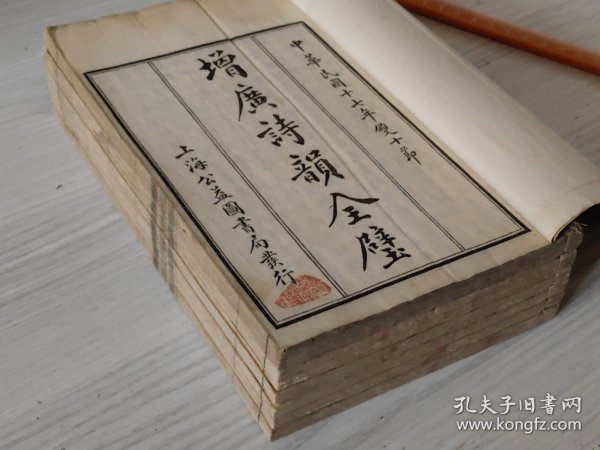 中華民國十七年雙十節
增廣詩韻全璧
上海公益圖書局發行
孔夫子旧书网
www.kongfz.com